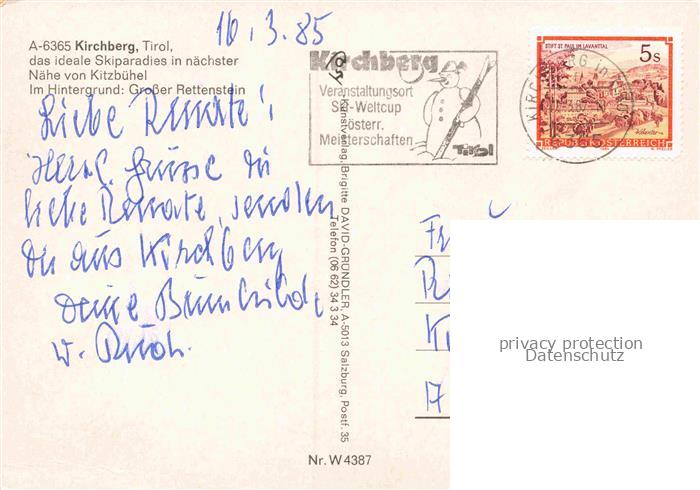 10.3.85
A-6365 Kirchberg, Tirol,
das ideale Skiparadies in nächster
Nähe von Kitzbühel
Im Hintergrund: Großer Rettenstein
Liebe Renate!
Herzl. Grüsse die
liebe Renate, senden
Dir aus Kirchberg
Deine Brunhilde
u. Rud.
Kirchberg
Veranstaltungsort
Ski-Weltcup
österr.
Meisterschaften
Tirol
STIFT ST. PAUL IM LAVANTTAL
5s
Kärnten
REPUBLIK ÖSTERREICH
KIRCHBERG in TIROL
Kunstverlag, Brigitte DAVID-GRÜNDLER, A-5013 Salzburg, Postf. 35
Telefon (06 62) 34 3 34
Nr. W 4387
privacy protection
Datenschutz